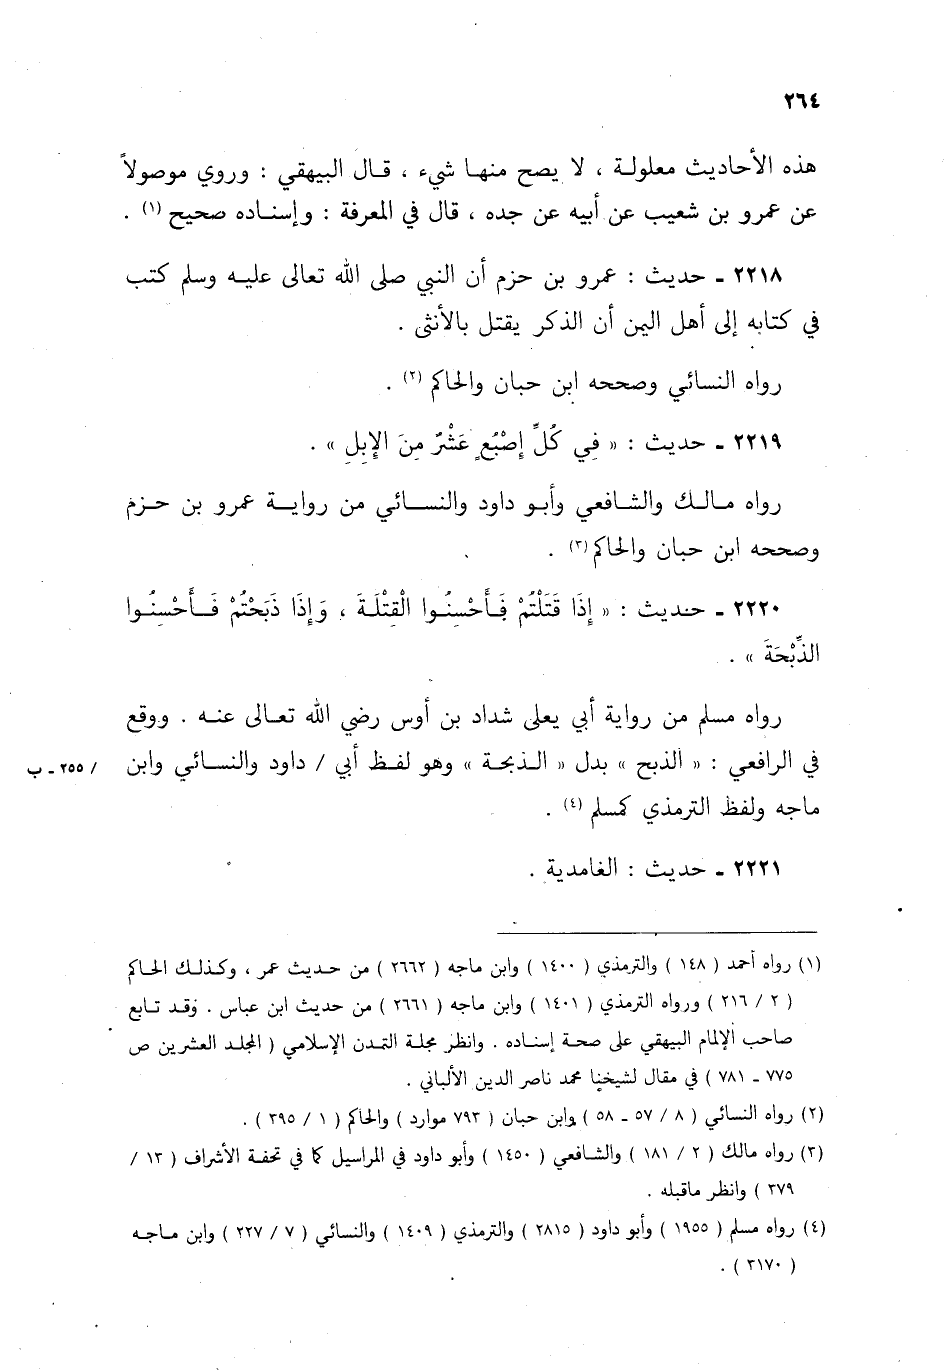 ٢٦٤
هذه الأحاديث معلولة ، لا يصح منها شيء ، قال البيهقي : وروي موصولاً
عن عمرو بن شعيب عن أبيه عن جده ، قال في المعرفة : وإسناده صحيح (١) .
٢٢١٨ ـ حديث : عمرو بن حزم أن النبي صلى الله تعالى عليه وسلم كتب
في كتابه إلى أهل اليمن أن الذكر يقتل بالأنثى .
رواه النسائي وصححه ابن حبان والحاكم (٢) .
٢٢١٩ ـ حديث : « فِي كُلِّ إِصْبُعٍ عَشْرٌ مِنَ الإِبِلِ » .
رواه مالك والشافعي وأبو داود والنسائي من رواية عمرو بن حزم
وصححه ابن حبان والحاكم (٣) .
٢٢٢٠ ـ حديث : « إِذَا قَتَلْتُمْ فَأَحْسِنُوا الْقِتْلَةَ ، وَإِذَا ذَبَحْتُمْ فَأَحْسِنُوا
الذِّبْحَةَ » .
رواه مسلم من رواية أبي يعلى شداد بن أوس رضي الله تعالى عنه . ووقع
في الرافعي : « الذبح » بدل « الذبحة » وهو لفظ أبي / داود والنسائي وابن / ٢٥٥ ـ ب
ماجه ولفظ الترمذي كمسلم (٤) .
٢٢٢١ ـ حديث : الغامدية .
(١) رواه أحمد ( ١٤٨ ) والترمذي ( ١٤٠٠ ) وابن ماجه ( ٢٦٦٢ ) من حديث عمر ، وكذلك الحاكم
( ٢ / ٢١٦ ) ورواه الترمذي ( ١٤٠١ ) وابن ماجه ( ٢٦٦١ ) من حديث ابن عباس . وقد تابع
صاحب الإلمام البيهقي على صحة إسناده . وانظر مجلة التمدن الإسلامي ( المجلد العشرين ص
٧٧٥ ـ ٧٨١ ) في مقال لشيخنا محمد ناصر الدين الألباني .
(٢) رواه النسائي ( ٨ / ٥٧ ـ ٥٨ ) وابن حبان ( ٧٩٣ موارد ) والحاكم ( ١ / ٣٩٥ ) .
(٣) رواه مالك ( ٢ / ١٨١ ) والشافعي ( ١٤٥٠ ) وأبو داود في المراسيل كما في تحفة الأشراف ( ١٣ /
٣٧٩ ) وانظر ماقبله .
(٤) رواه مسلم ( ١٩٥٥ ) وأبو داود ( ٢٨١٥ ) والترمذي ( ١٤٠٩ ) والنسائي ( ٧ / ٢٢٧ ) وابن ماجه
( ٣١٧٠ ) .